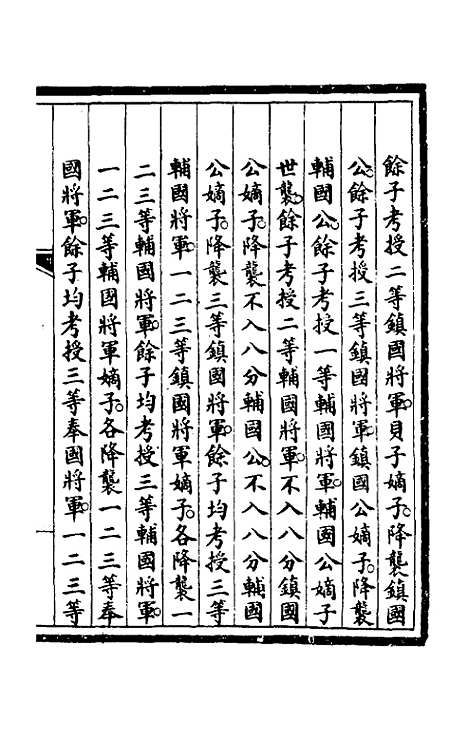 餘子考授二等鎮國將軍。貝子嫡子。降襲鎮國
公。餘子考授三等鎮國將軍。鎮國公嫡子。降襲
輔國公。餘子考授一等輔國將軍。輔國公嫡子
世襲。餘子考授二等輔國將軍。不入八分鎮國
公嫡子。降襲不入八分輔國公。不入八分輔國
公嫡子。降襲三等鎮國將軍。餘子均考授三等
輔國將軍。一二三等鎮國將軍嫡子。各降襲一
二三等輔國將軍。餘子均考授三等輔國將軍。
一二三等輔國將軍嫡子。各降襲一二三等奉
國將軍。餘子均考授三等奉國將軍。一二三等